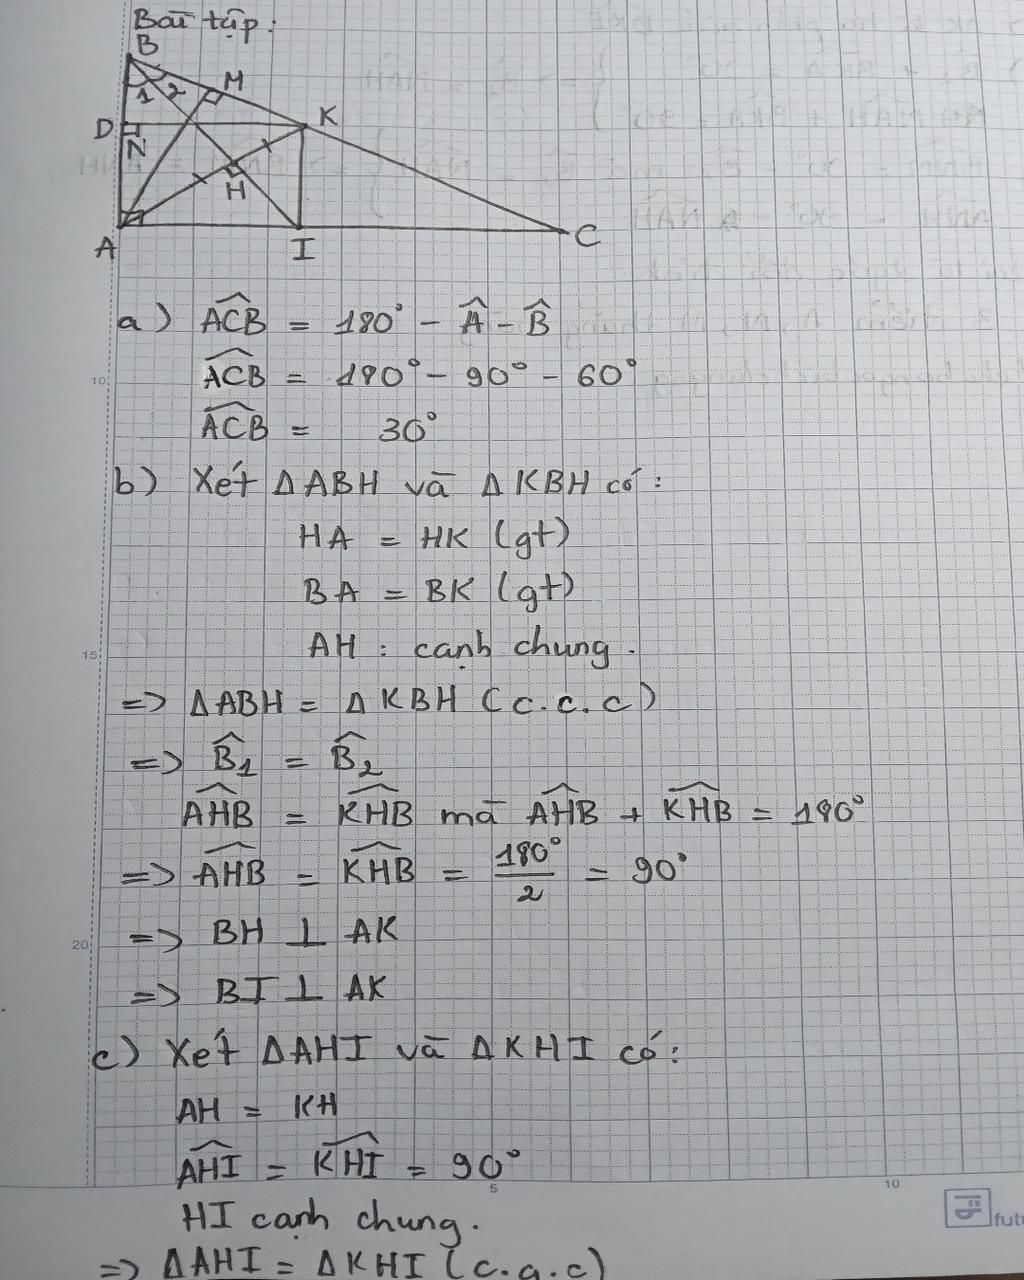 Bài tập:
B
1 2 M
D K
N
H
A I C
a) ACB = 180° - A - B
10
ACB = 180° - 90° - 60°
ACB = 30°
b) Xét ΔABH và ΔKBH có:
HA = HK (gt)
BA = BK (gt)
15
AH : cạnh chung.
=> ΔABH = ΔKBH (c.c.c)
=> B1 = B2
AHB = KHB mà AHB + KHB = 180°
=> AHB = KHB = 180°/2 = 90°
20
=> BH ⊥ AK
=> BI ⊥ AK
c) Xét ΔAHI và ΔKHI có:
AH = KH
AHI = KHI = 90°
5 10
HI cạnh chung.
futu
=> ΔAHI = ΔKHI (c.g.c)